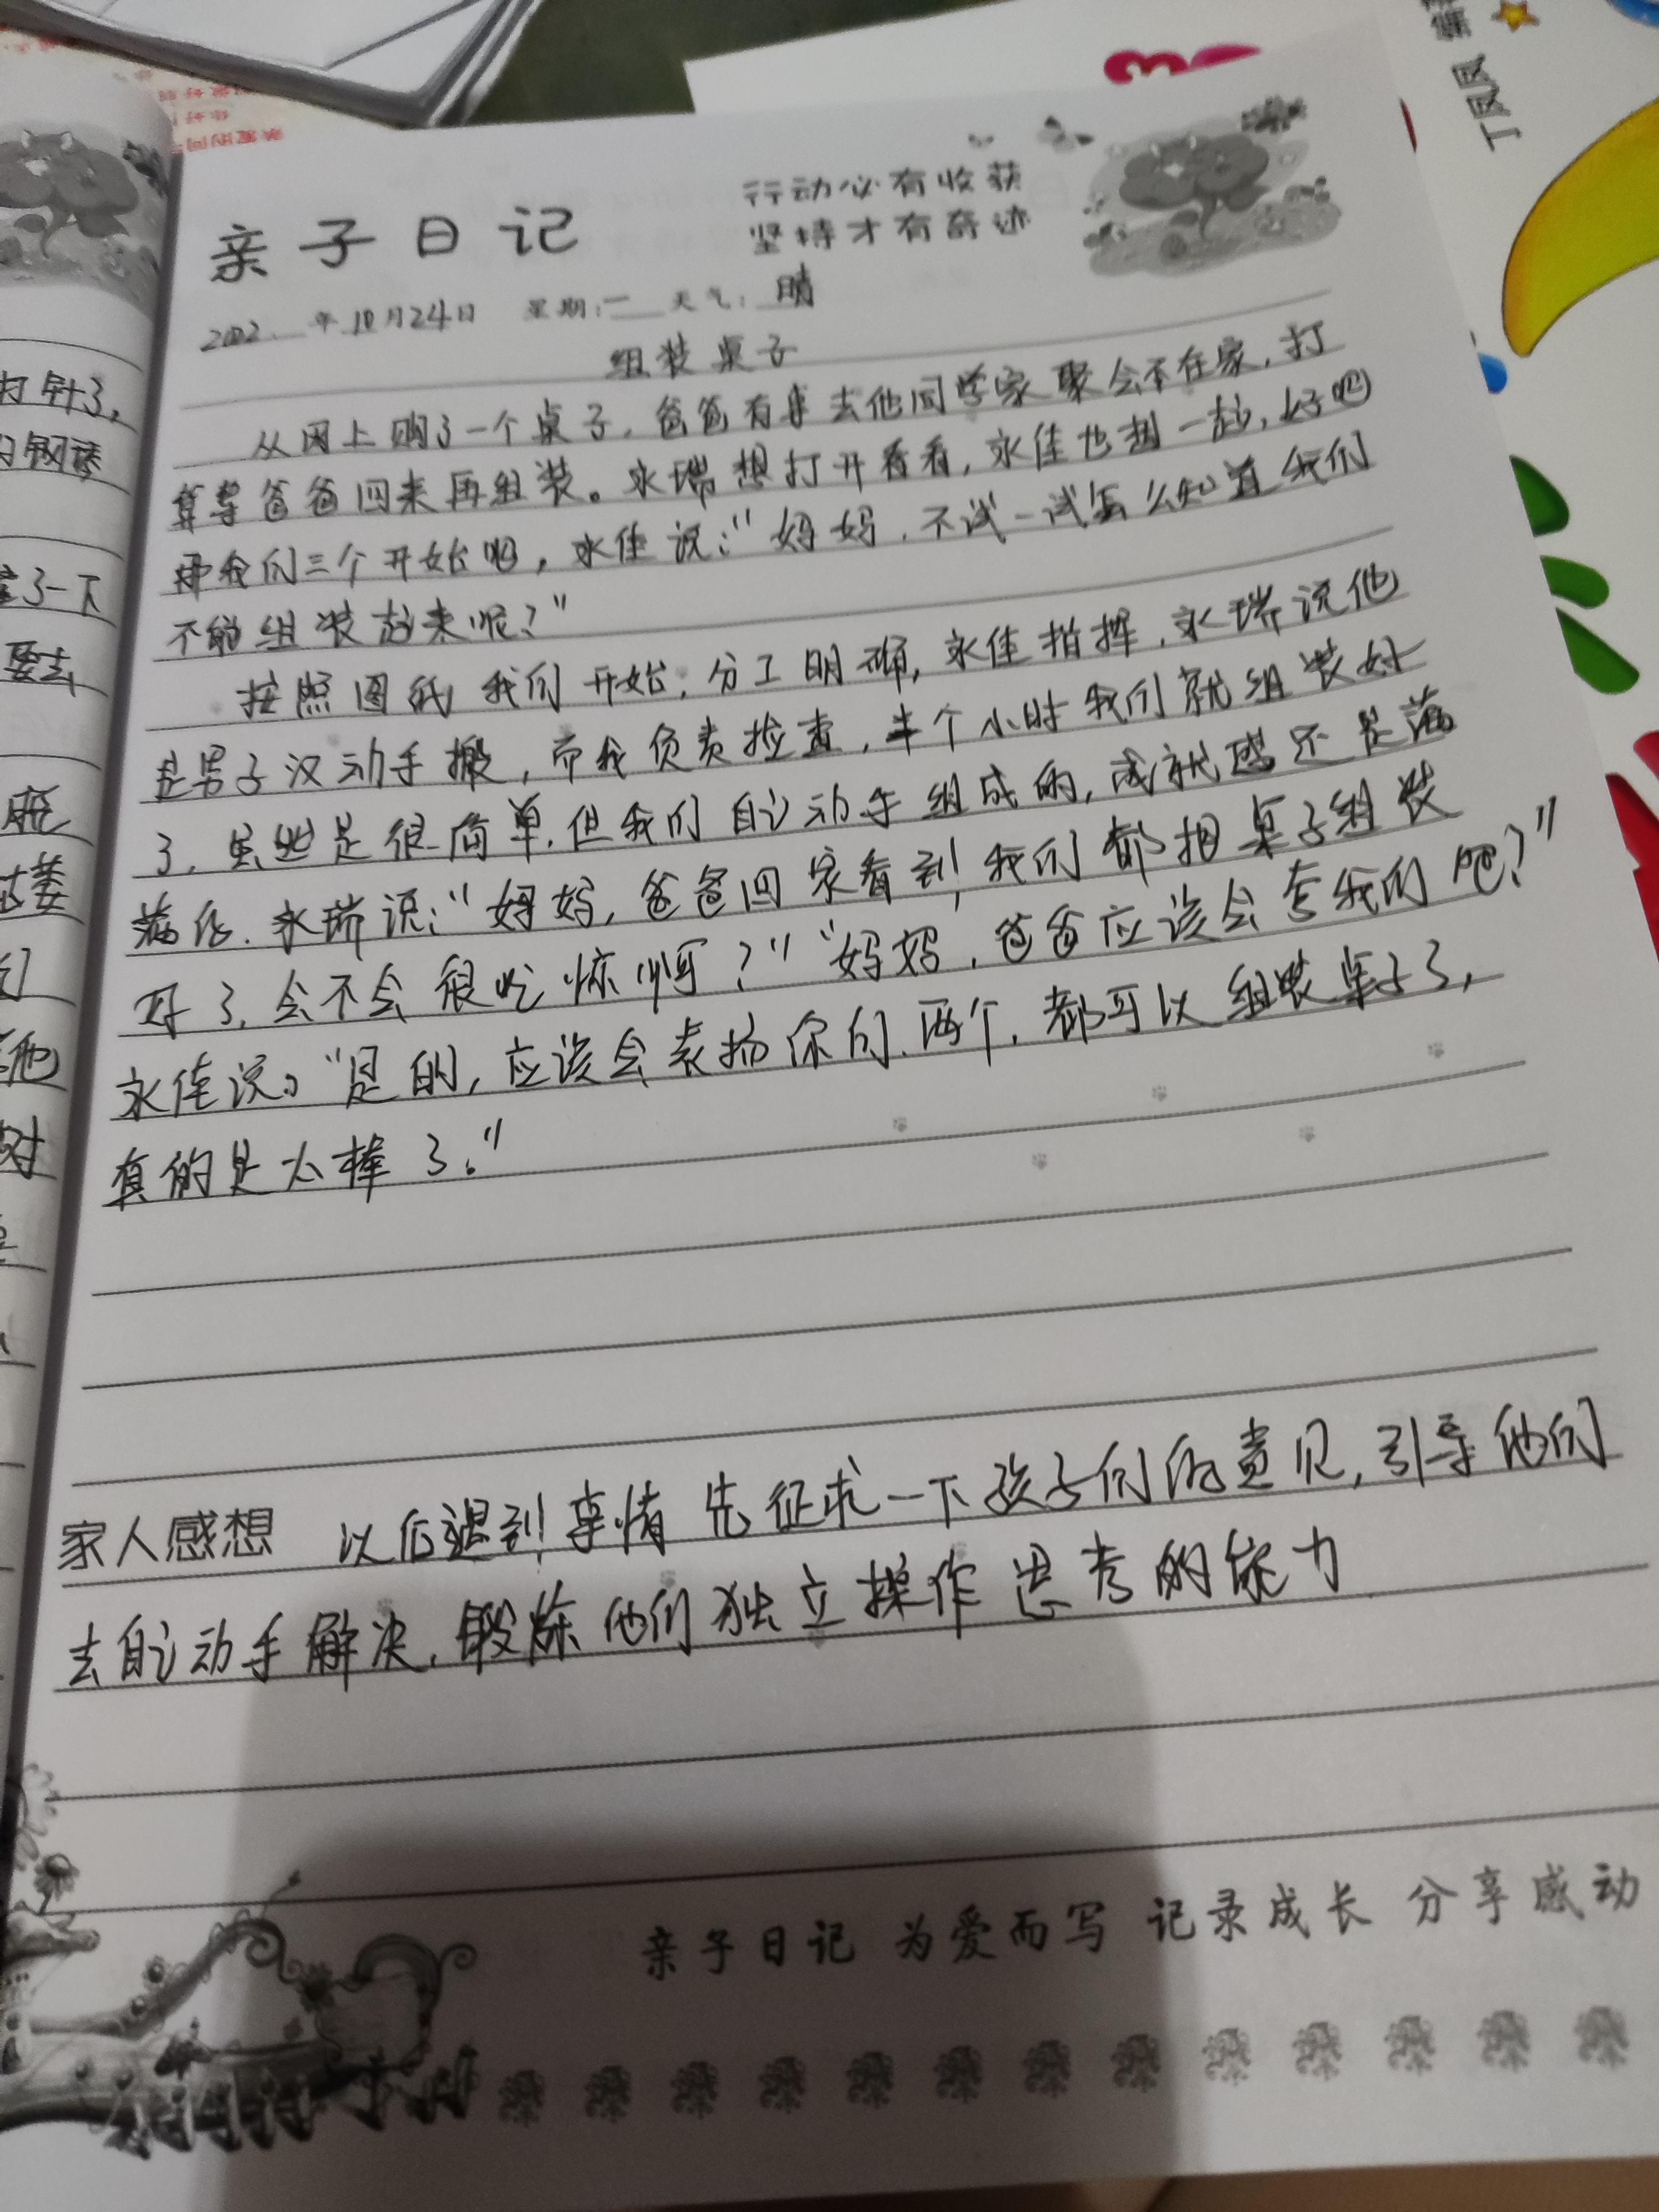 亲子日记
行动必有收获
坚持才有奇迹
2022年10月24日 星期:一 天气:晴
组装桌子
从网上购了一个桌子,爸爸有事去他同学家聚会不在家,打
算等爸爸回来再组装。永瑞想打开看看,永佳也想一起,好吧
那我们三个开始吧,永佳说:"妈妈,不试一试怎么知道我们
不能组装起来呢?"
按照图纸我们开始,分工明确,永佳指挥,永瑞说他
是男子汉动手搬,而我负责检查,半个小时我们就组装好
了,虽然是很简单,但我们自己动手组成的,成就感还是满
满的,永瑞说:"妈妈,爸爸回家看到我们都把桌子组装
好了,会不会很吃惊啊?""妈妈,爸爸应该会夸我们吧?"
永佳说。"是的,应该会表扬你们两个,都可以组装桌子了,
真的是太棒了。"
家人感想 以后遇到事情先征求一下孩子们的意见,引导他们
去自己动手解决,锻炼他们独立操作思考的能力
亲子日记 为爱而写 记录成长 分享感动
打针了,
了一下
要去
他
对
丁凤凤